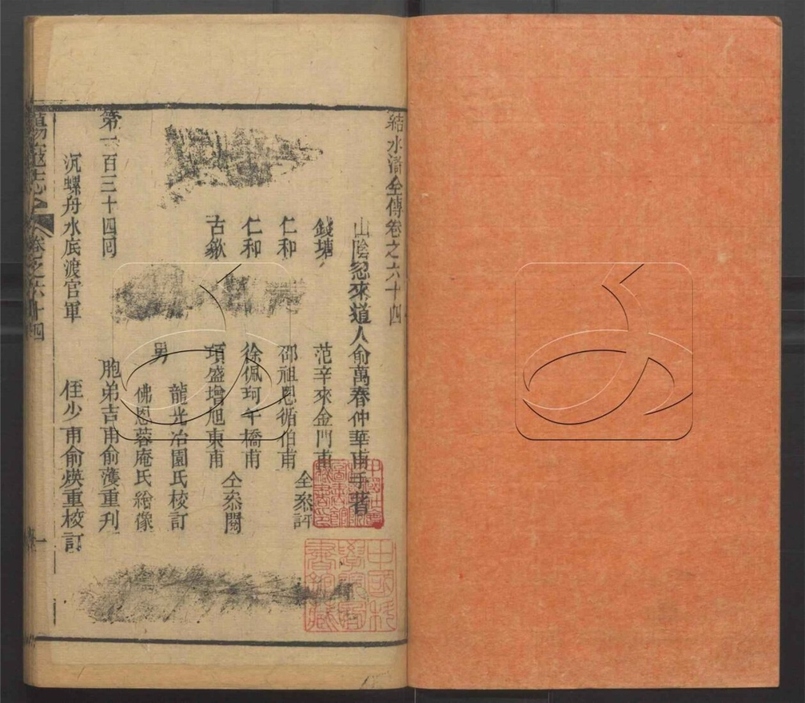 結水滸全傳卷之六十四
山陰忽來道人俞萬春仲華甫手著
錢塘 范辛來金門甫
仁和 邵祖恩循伯甫 仝參評
仁和 徐佩珂午橋甫
古歙 項盛增旭東甫 仝參閱
男 龍光冶園氏校訂
佛恩蓉庵氏繪像
第一百三十四回 胞弟吉甫俞𧄍重刋
沉螺舟水底渡官軍 侄少甫俞煐重校訂
蕩寇志 卷之六十四 一